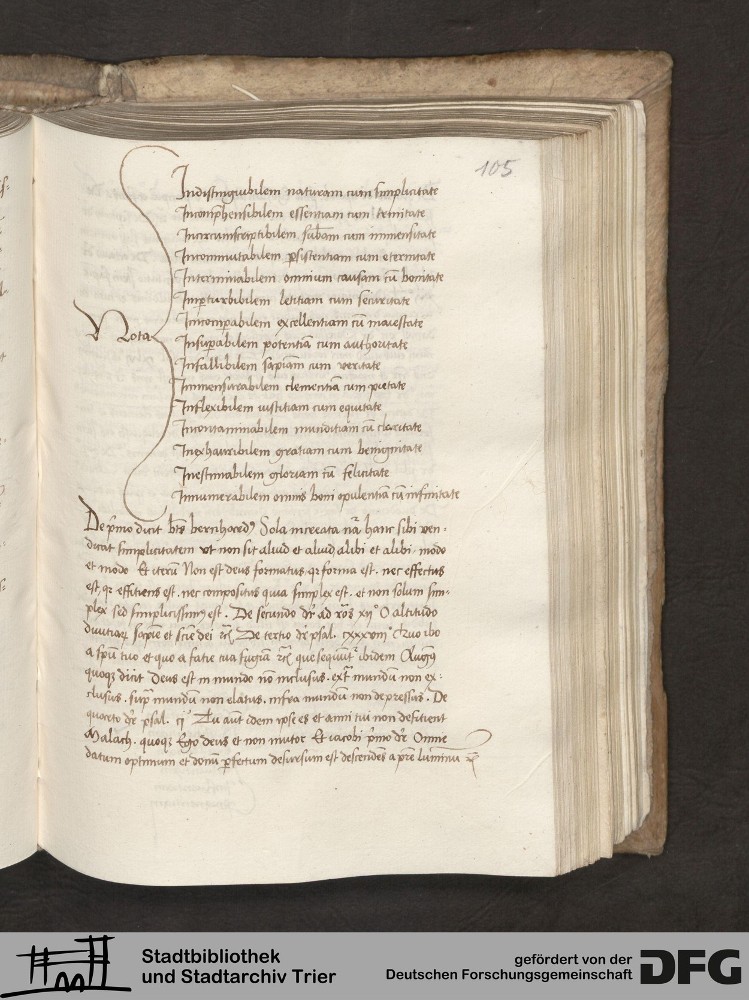 105
Indistinguibilem naturam cum simplicitate
Incomp̄hensibilem essentiam cum trinitate
Incircumscriptibilem subāam cum immensitate
Incommutabilem ꝑsistentiam cum eternitate
Interminabilem omnium causam cū bonitate
Imꝑturbibilem letitiam cum securitate
Incomꝑabilem excellentiam cū maiestate
Nota
Insuꝑabilem potentiā cum authoritate
Infallibilem sapiam̄ cum veritate
Immensurabilem clementiā cum pietate
Inflexibilem iustitiam cum equitate
Incontaminabilem munditiam cū claritate
Inexhauribilem gratiam cum benignitate
Inestimabilem gloriam cū felicitate
Innumerabilem omnis boni opulentiā cū infinitate
De pͥmo dicit btꝰs bernhardꝰ Sola increata nā hanc sibi ven-
dicat simplicitatem vt non sit aliud et aliud alibi et alibi, modo
et modo Et iterū Non est deus formatus, qꝛ forma est. nec effectus
est, qꝛ efficiens est, nec compositus quia simplex est. et non solum sim-
plex sed simplicissimꝰ est. De secundo dr̄ ad ro͞os xjº O altitudo
diuitiaꝝ sapīe et scīe dei ꝛc̄ De tertio dr̄ psal. cxxxviijº Quo ibo
a sp̄u tuo et quo a facie tua fugiā ꝛc̄ que sequūtᷣ ibidem Augꝰ
quoqꝫ dicit Deus est in mundo nō inclusus. extᷓ mundū non ex-
clusus. supᷓ mundū non elatus. infra mundū non depressus. De
quarto dr̄ psal. cjº Tu aūt idem ipse es et anni tui non deficient
Malach. quoqꝫ Ego deus et non mutor Et iacobi pͥmo dr̄ Omne
datum optimum et donū ꝑfectum desursum est descendēs a pr̄e luminū ꝛc̄
Stadtbibliothek
und Stadtarchiv Trier
gefördert von der
Deutschen Forschungsgemeinschaft
DFG